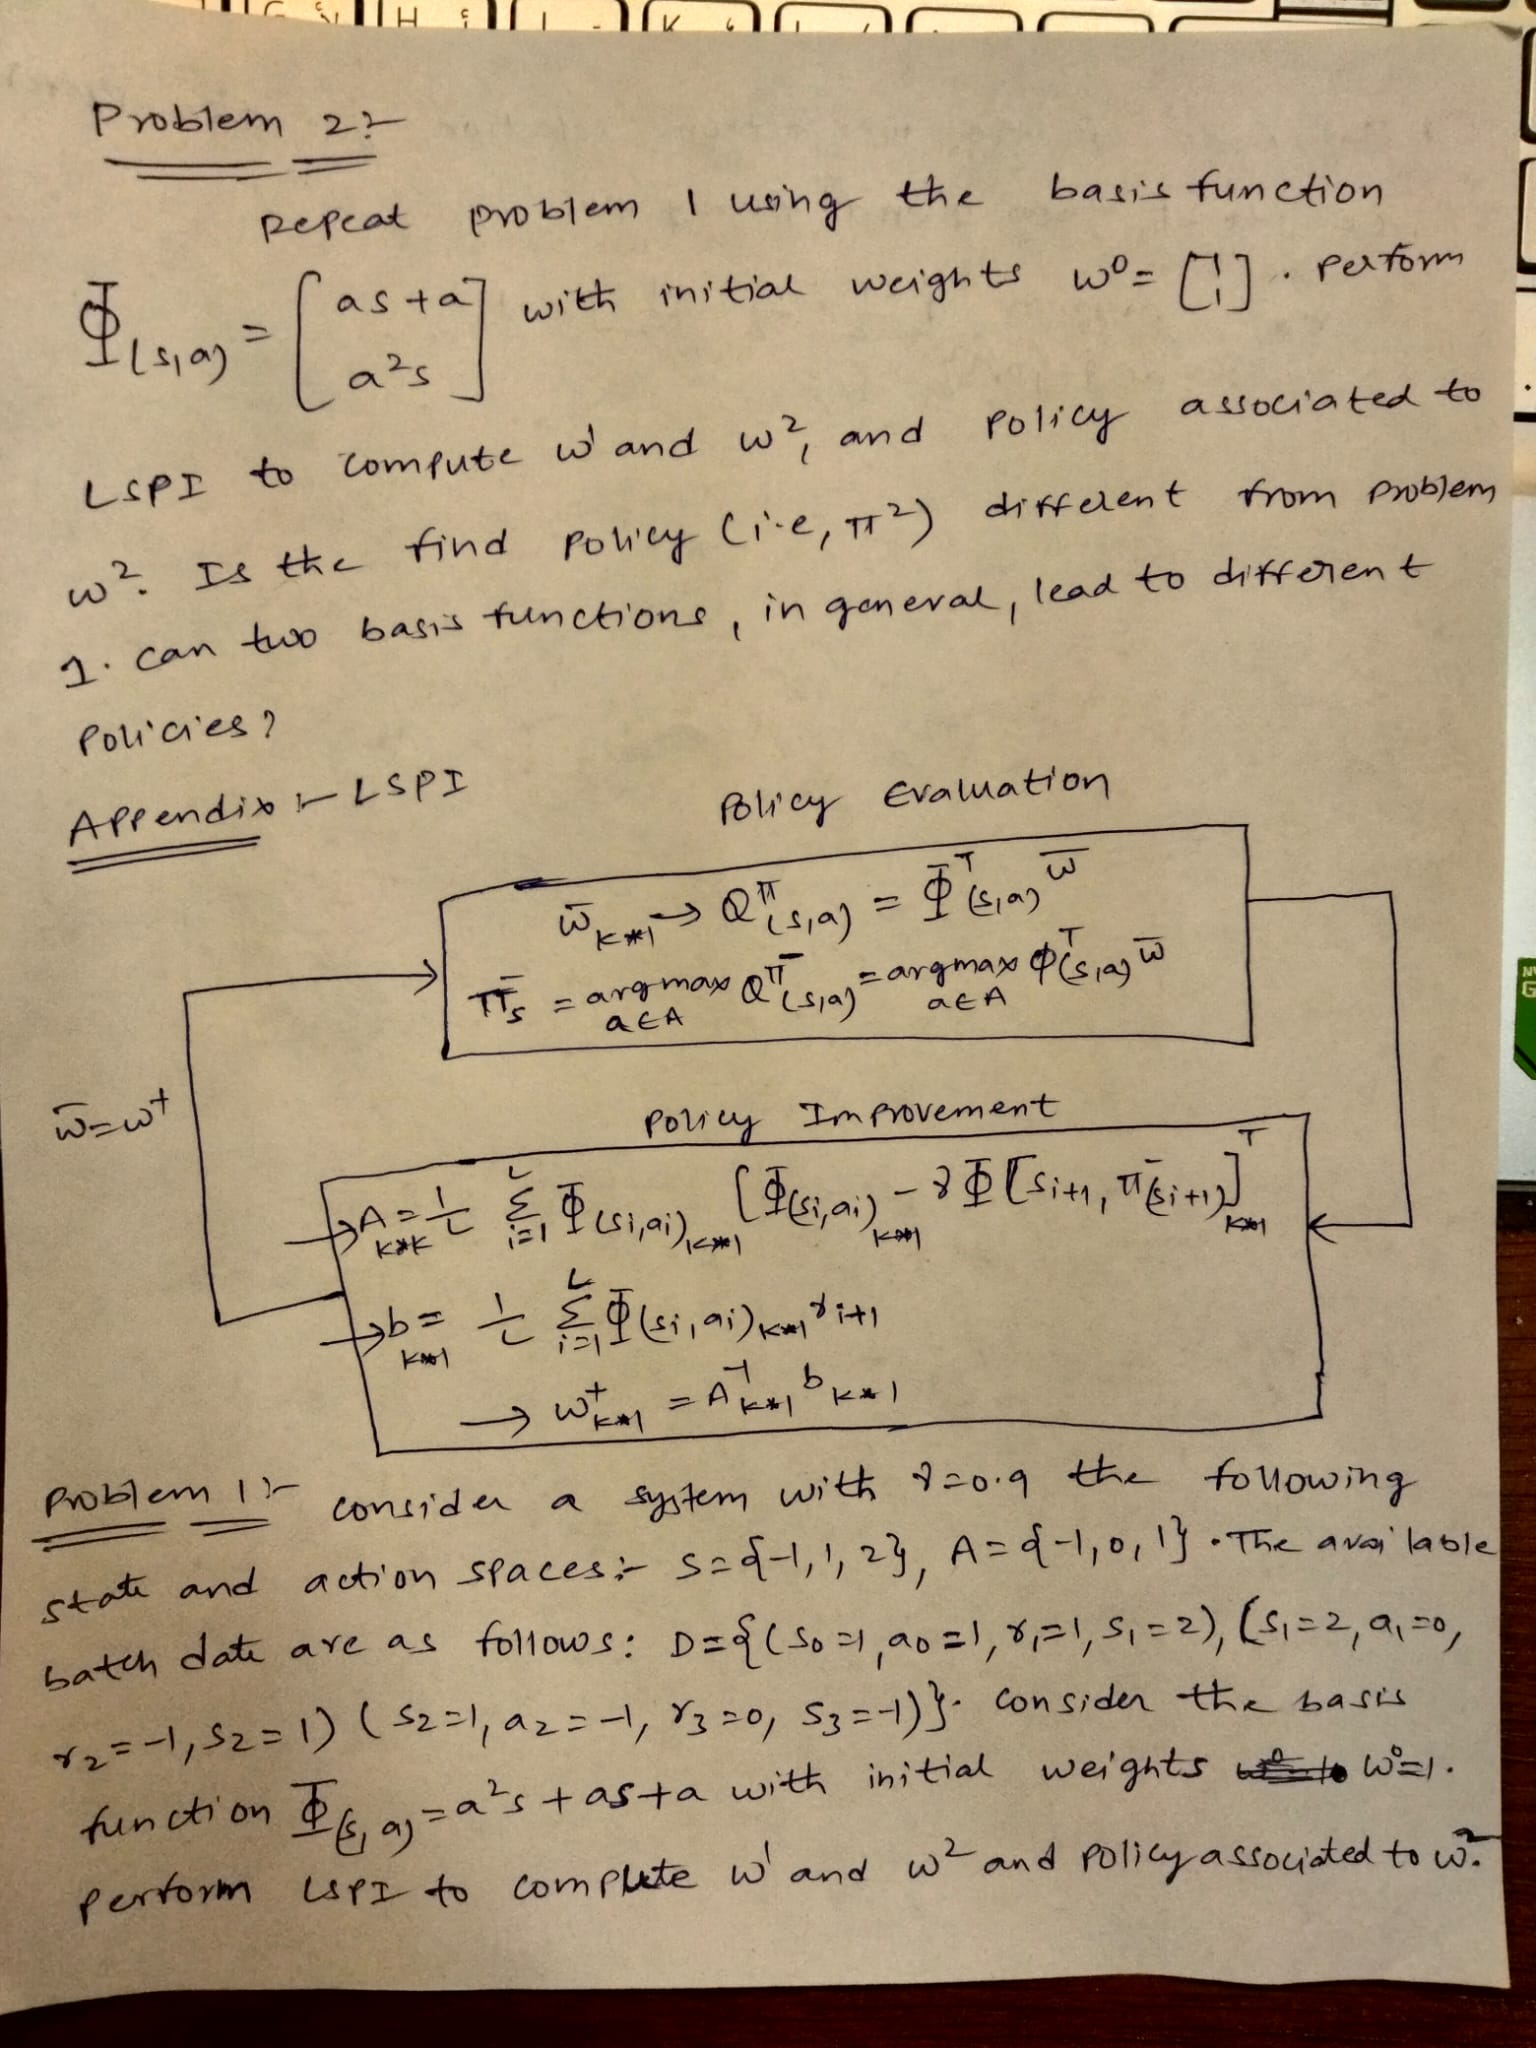 G H I K
Problem 2:-
Repeat problem 1 using the basis function
Φ(s,a) = [as+a a²s] with initial weights w⁰= [1 1]. Perform
LSPI to compute w¹ and w², and policy associated to
w². Is the find policy (i.e, π²) different from problem
1. can two basis functions, in general, lead to different
policies?
Appendix :- LSPI
Policy Evaluation
w̄ K*1 → Qπ̄(s,a) = Φ̄ᵀ(s,a) w̄
π̄s = argmax a∈A Qπ̄(s,a) = argmax a∈A Φᵀ(s,a) w̄
w̄=w⁺
Policy Improvement
→ A K*K = 1/L Σ i=1 L Φ(si,ai) K*1 [Φ(si,ai) K*1 - γ Φ[si+1, π̄(si+1)] K*1 ]ᵀ
→ b K*1 = 1/L Σ i=1 L Φ(si,ai) K*1 γi+1
→ w⁺ K*1 = A⁻¹ K*1 b K*1
Problem 1 :- consider a system with γ=0.9 the following
state and action spaces:- S={-1,1,2}, A={-1,0,1}. The available
batch date are as follows: D={(s₀=1,a₀=1,r₁=1,s₁=2), (s₁=2,a₁=0,
r₂=-1,s₂=1) (s₂=1,a₂=-1, r₃=0, s₃=-1)}. consider the basis
function Φ(s,a)=a²s+as+a with initial weights w⁰=1.
perform LSPI to complute w¹ and w² and policy associated to w².